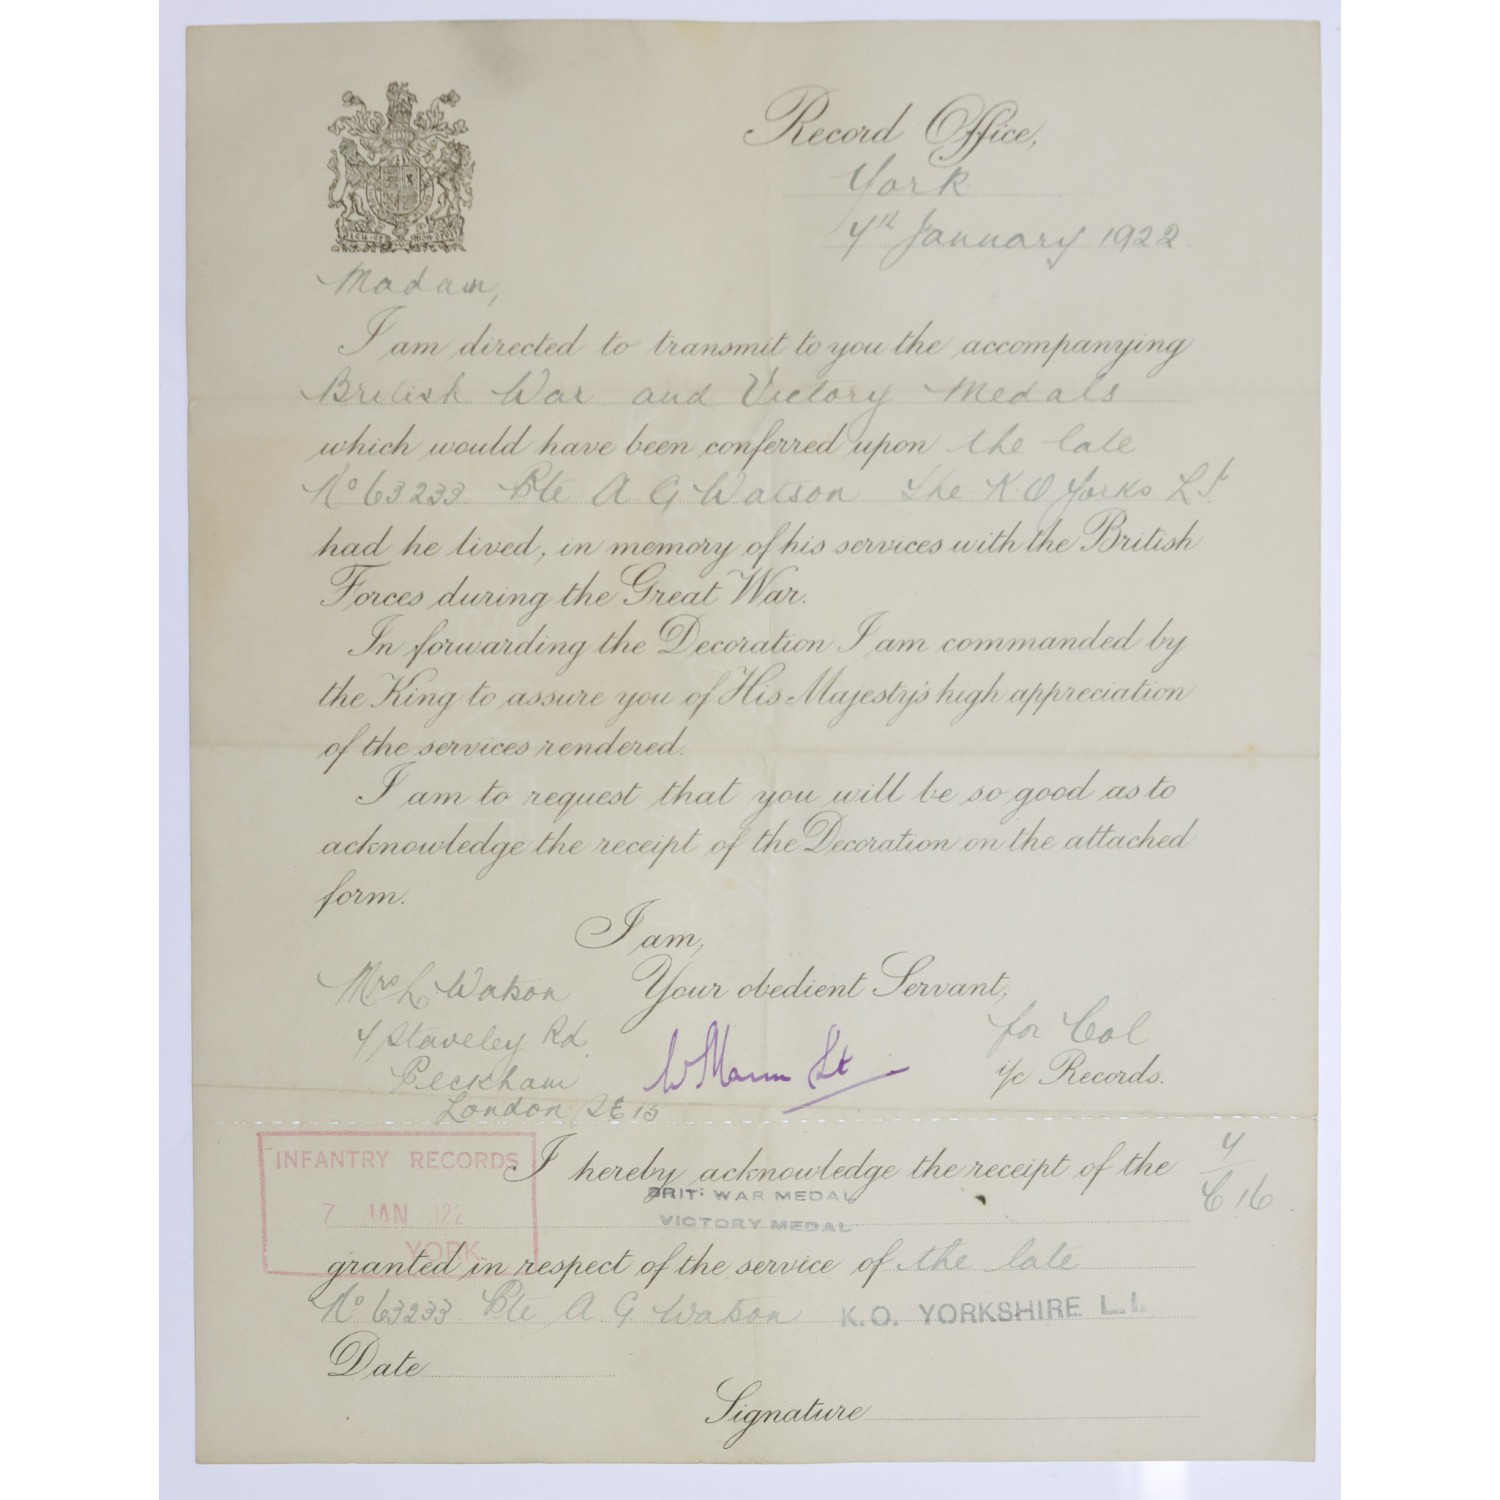 Record Office,
York
7th January 1922.
Madam,
I am directed to transmit to you the accompanying
British War and Victory Medals
which would have been conferred upon the late
No 63233. Pte A G Watson The K.O. Yorks. L.I.
had he lived, in memory of his services with the British
Forces during the Great War.
In forwarding the Decoration I am commanded by
the King to assure you of His Majesty's high appreciation
of the services rendered.
I am to request that you will be so good as to
acknowledge the receipt of the Decoration on the attached
form.
I am,
Your obedient Servant,
Mrs L. Watson
7 Staveley Rd.
Peckham
London SE 15
W Mann Lt
for Col
i/c Records.
INFANTRY RECORDS
7 JAN 192
YORK
I hereby acknowledge the receipt of the
BRIT: WAR MEDAL
VICTORY MEDAL
granted in respect of the service of the late
No 63233. Pte A. G. Watson K.O. YORKSHIRE L.I.
Date
Signature